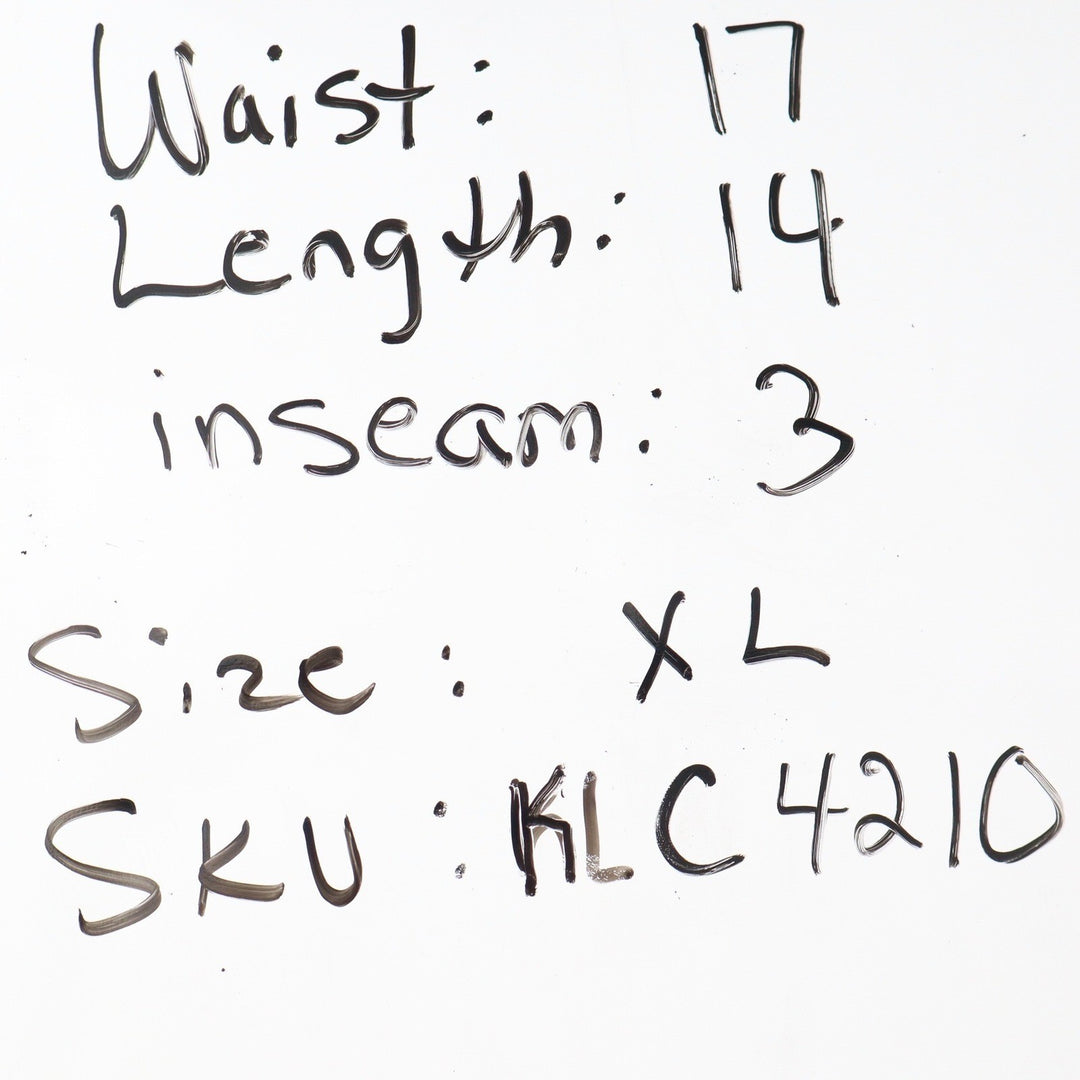 Waist: 17
Length: 14
inseam: 3
Size: XL
SKU: KLC4210